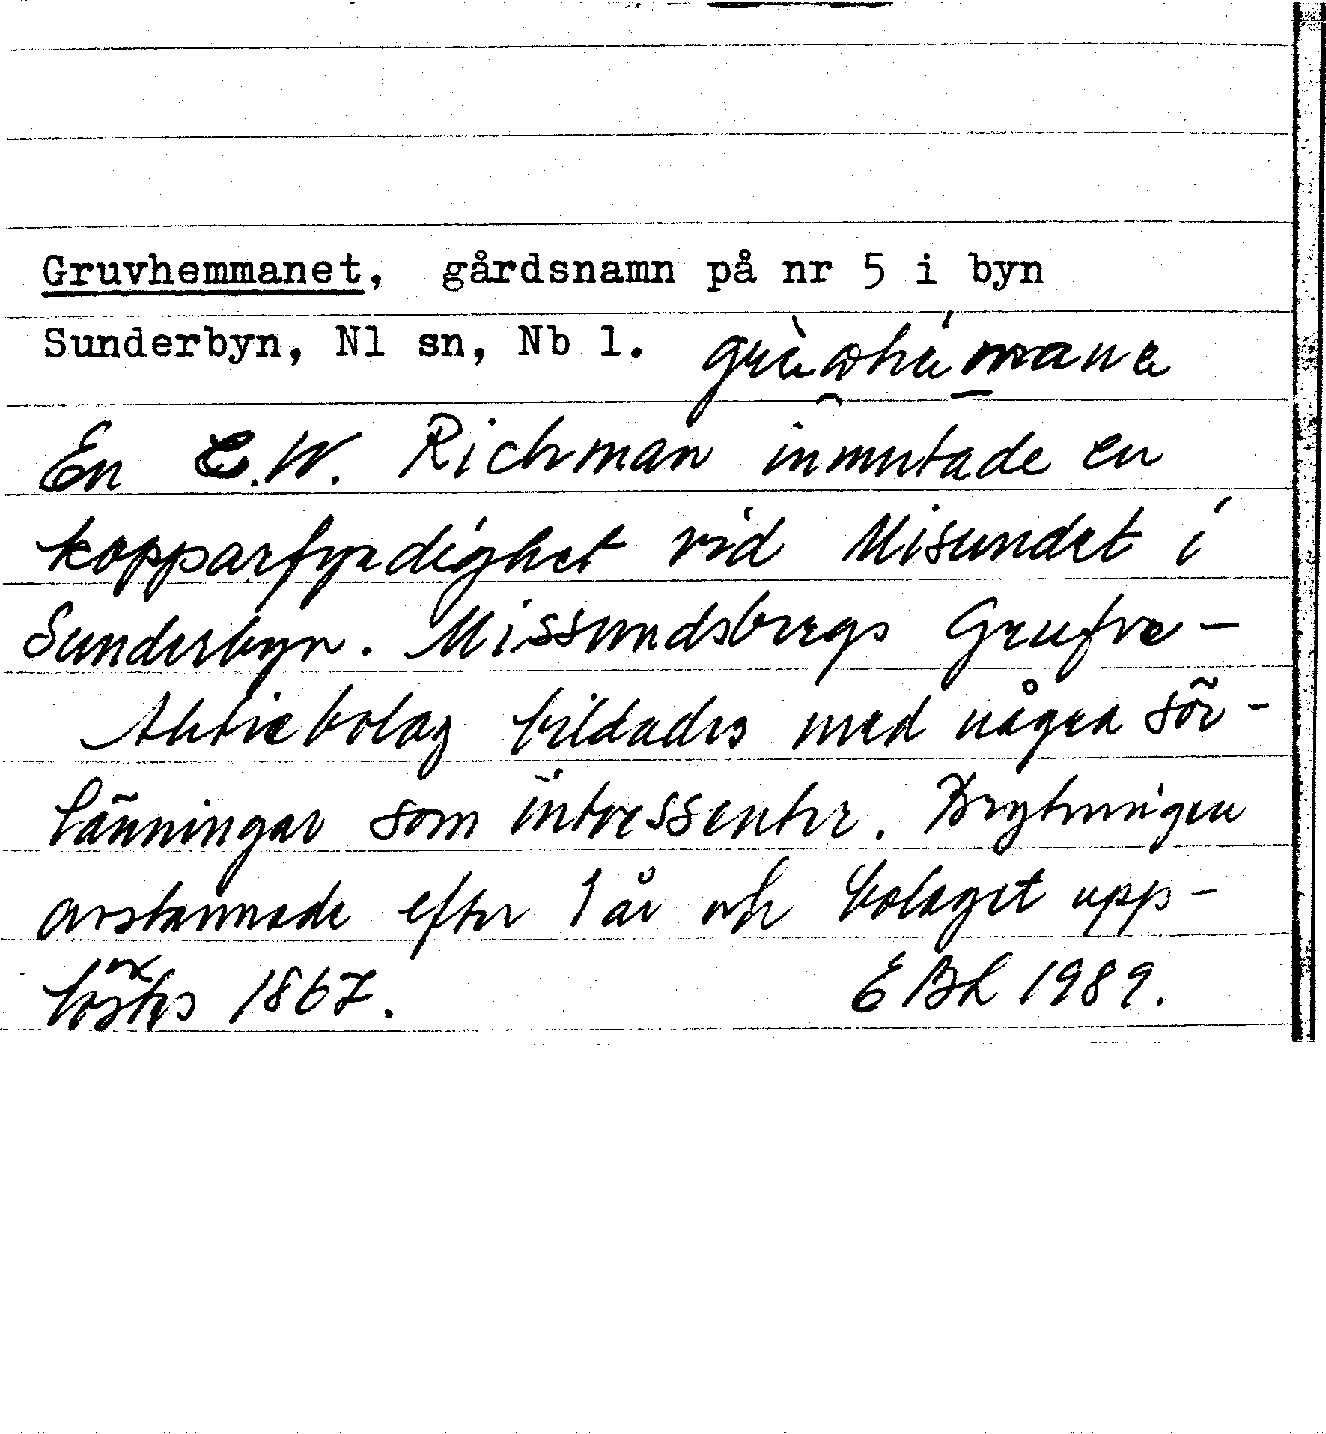 Gruvhemmanet, gårdsnamn på nr 5 i byn
Sunderbyn, Nl sn, Nb l.
En C.W. Richman inmutade en
kopparfyndighet vid Misundet i
Sunderbyn. Missundsbergs Grufve-
Aktiebolag bildades med några sör-
länningar som intressenter. Brytningen
avstannade efter 1 år och bolaget upp-
löstes 1867. EBL 1989.